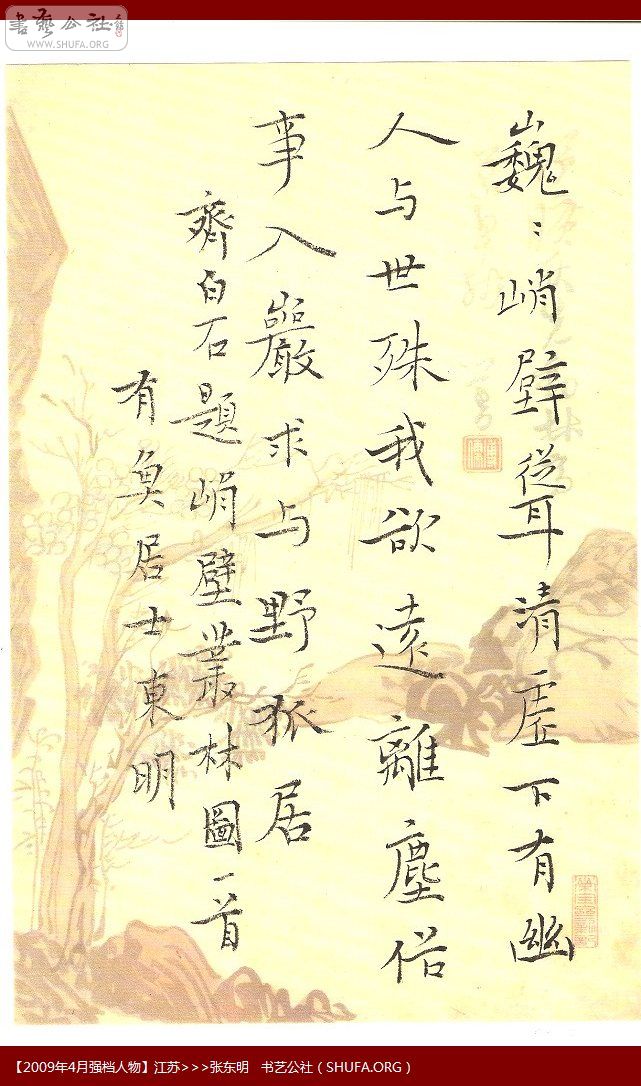 書藝公社
WWW.SHUFA.ORG
巍〻峭壁聳清虛下有幽
人与世殊我欲遠離塵俗
事入巖求与野狐居
齊白石題峭壁叢林圖一首
有魚居士東明
【2009年4月强档人物】江苏>>>张东明 书艺公社（SHUFA.ORG）